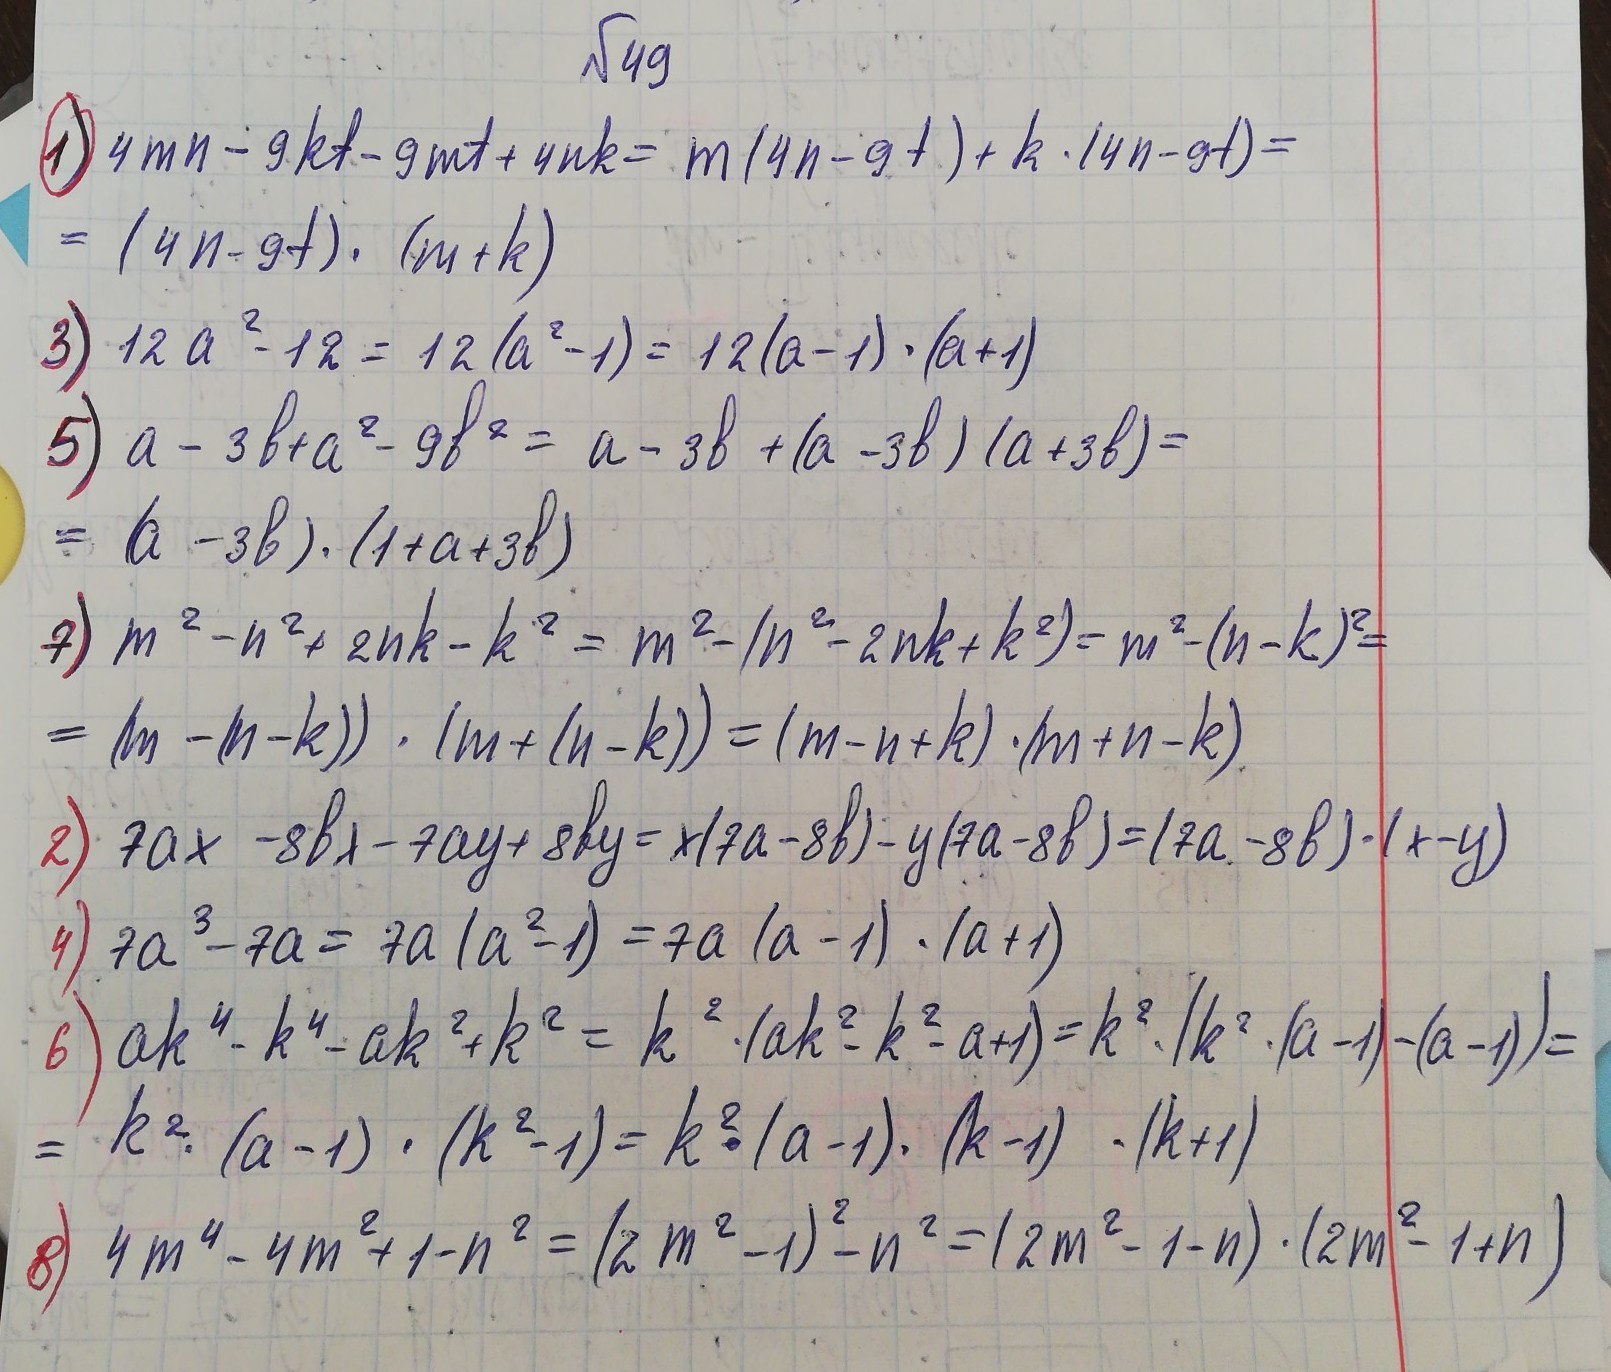 №49
1) 4mn - 9kt - 9mt + 4nk = m(4n - 9t) + k · (4n - 9t) =
= (4n - 9t) · (m + k)
3) 12a² - 12 = 12(a² - 1) = 12(a - 1) · (a + 1)
5) a - 3b + a² - 9b² = a - 3b + (a - 3b)(a + 3b) =
= (a - 3b) · (1 + a + 3b)
7) m² - n² + 2nk - k² = m² - (n² - 2nk + k²) = m² - (n - k)² =
= (m - (n - k)) · (m + (n - k)) = (m - n + k) · (m + n - k)
2) 7ax - 8bx - 7ay + 8by = x(7a - 8b) - y(7a - 8b) = (7a - 8b) · (x - y)
4) 7a³ - 7a = 7a(a² - 1) = 7a(a - 1) · (a + 1)
6) ak⁴ - k⁴ - ak² + k² = k² · (ak² - k² - a + 1) = k² · (k² · (a - 1) - (a - 1)) =
= k² · (a - 1) · (k² - 1) = k² · (a - 1) · (k - 1) · (k + 1)
8) 4m⁴ - 4m² + 1 - n² = (2m² - 1)² - n² = (2m² - 1 - n) · (2m² - 1 + n)